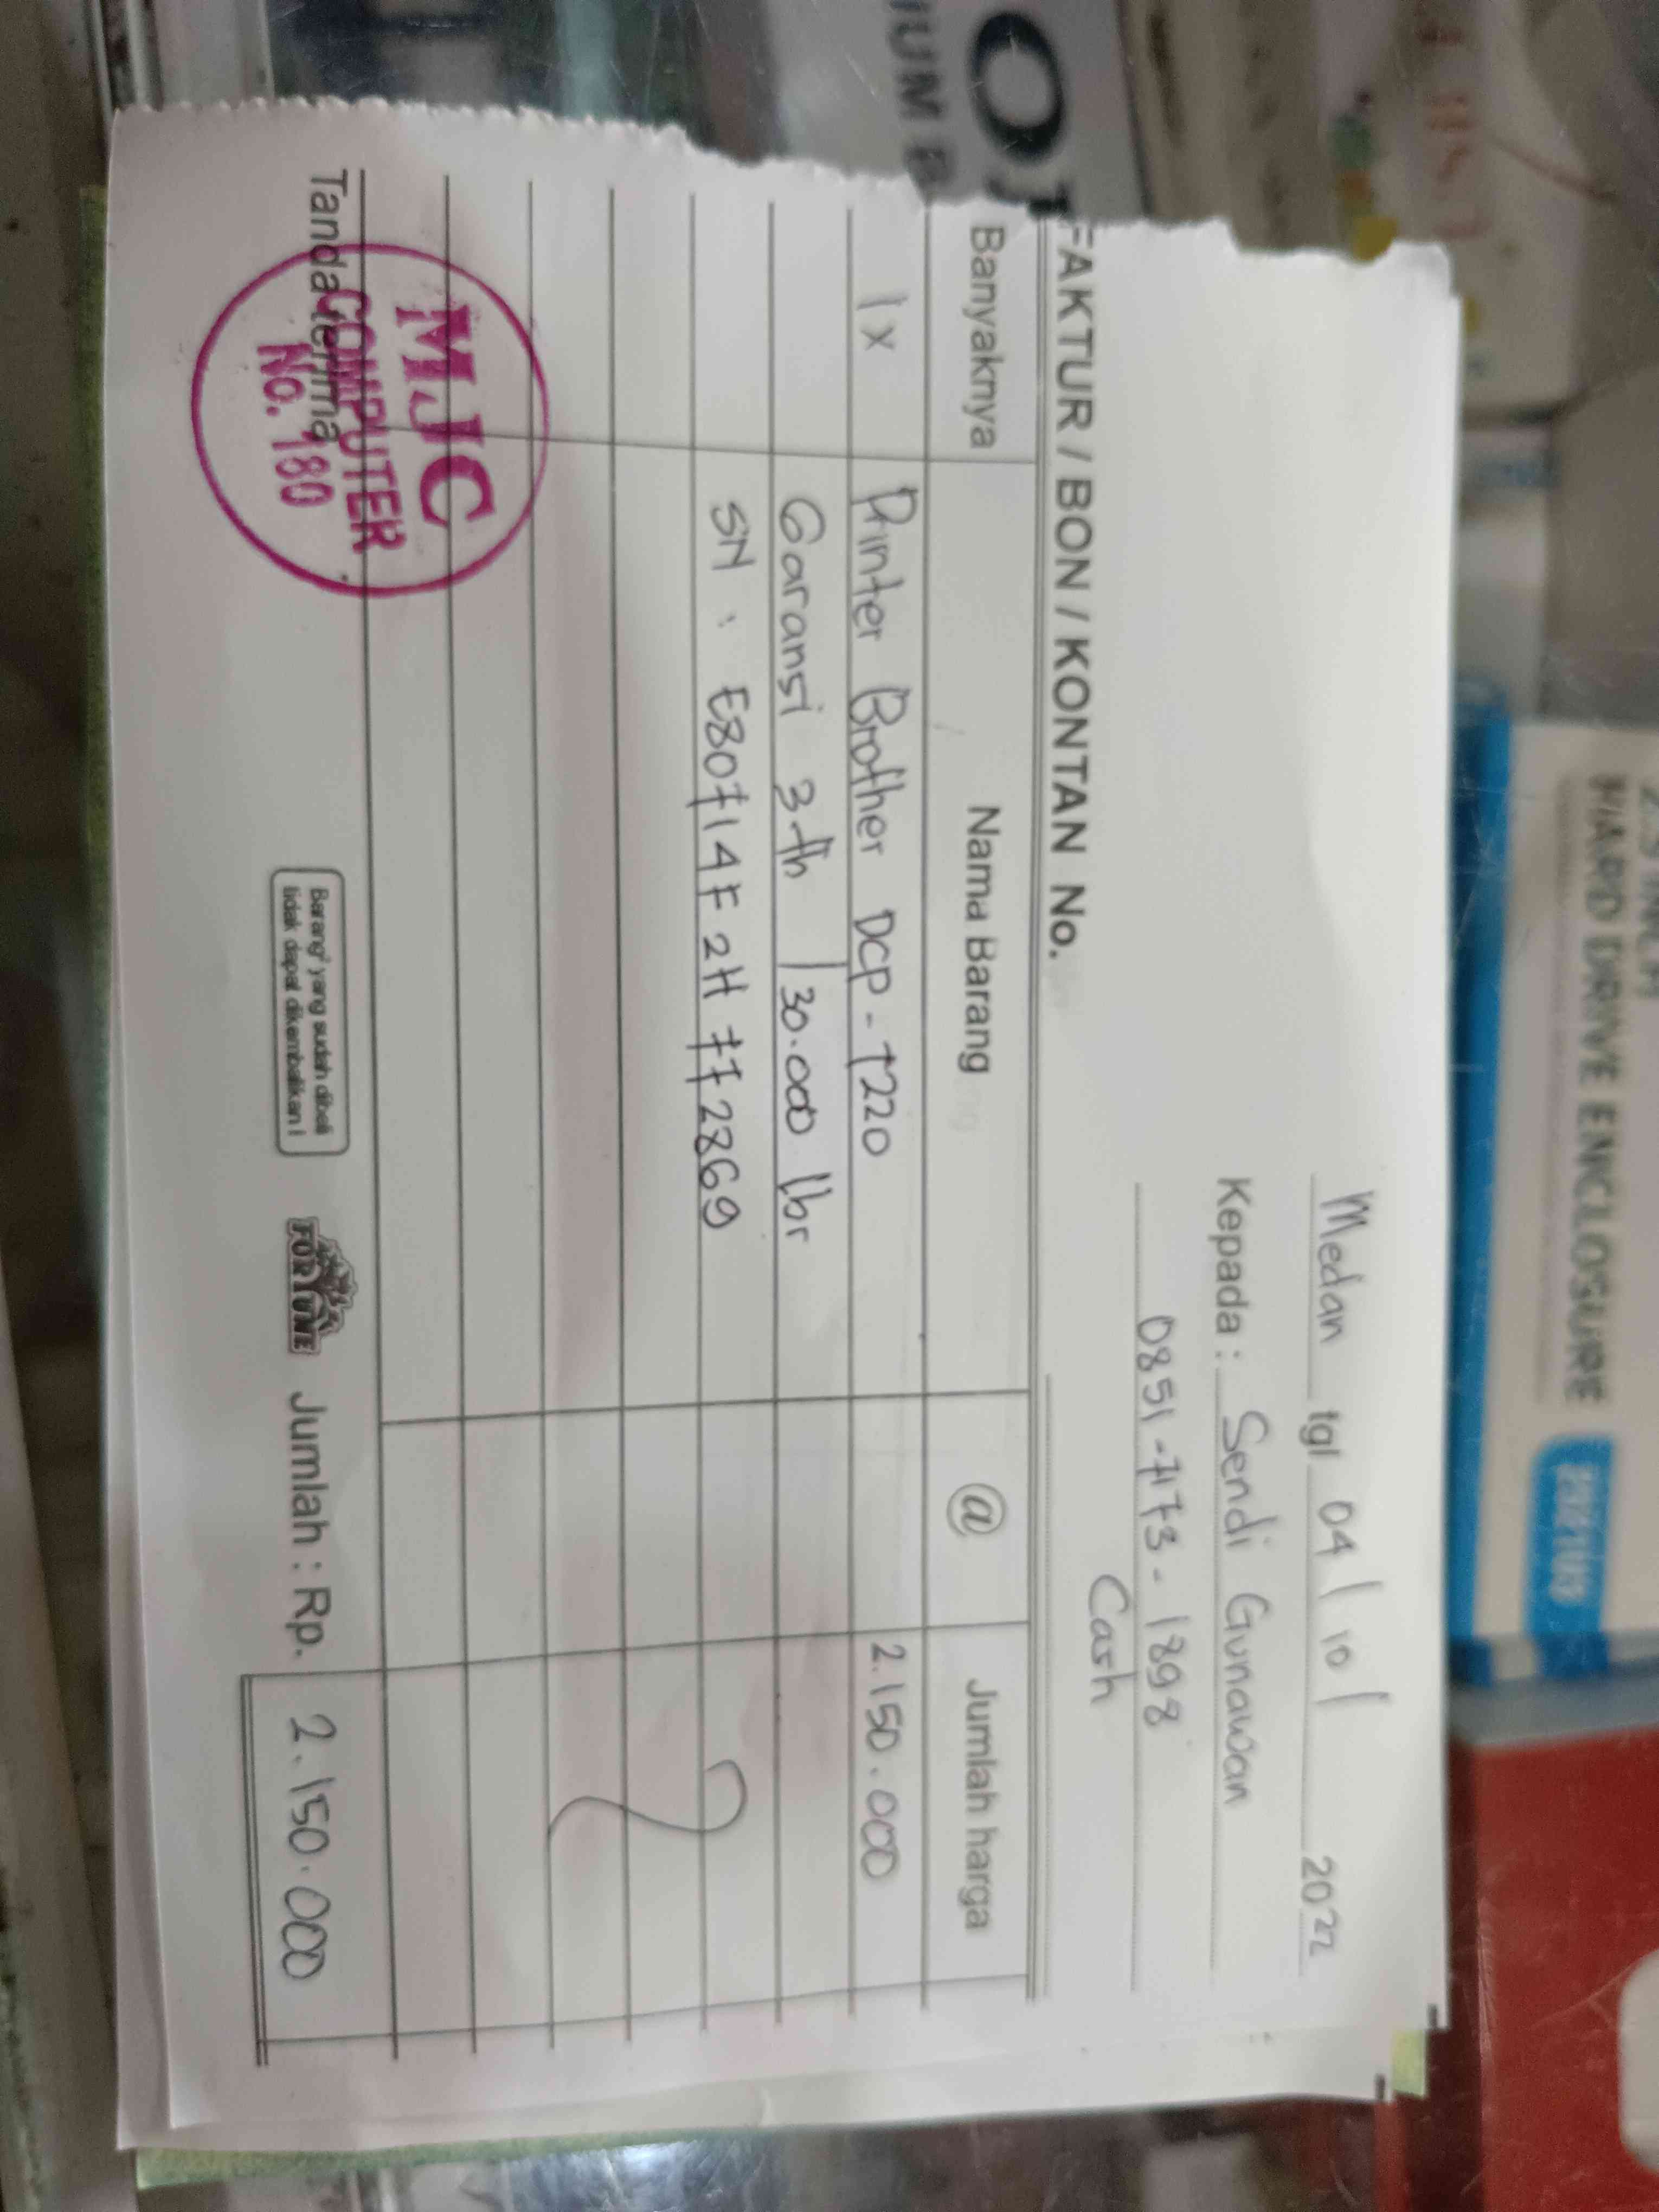 Medan tgl 04 / 10 / 2022
Kepada : Sendi Gunawan
0851-7173-1898
Cash
FAKTUR / BON / KONTAN No.
Banyaknya Nama Barang @ Jumlah harga
1x Printer Brother DCP-T220 2.150.000
Garansi 3 th / 30.000 lbr
SN : E80714F2H772869
Tanda terima
MJC
COMPUTER
No. 180
Barang² yang sudah dibeli
tidak dapat dikembalikan!
FORTUNE
Jumlah : Rp. 2.150.000
HARD DRIVE ENCLOSURE